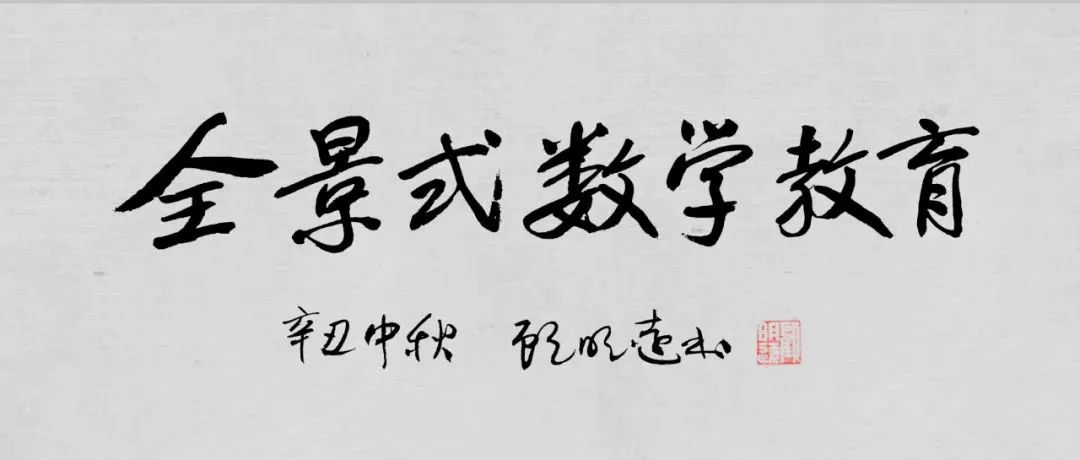 全景式数学教育
辛丑中秋 顾明远书